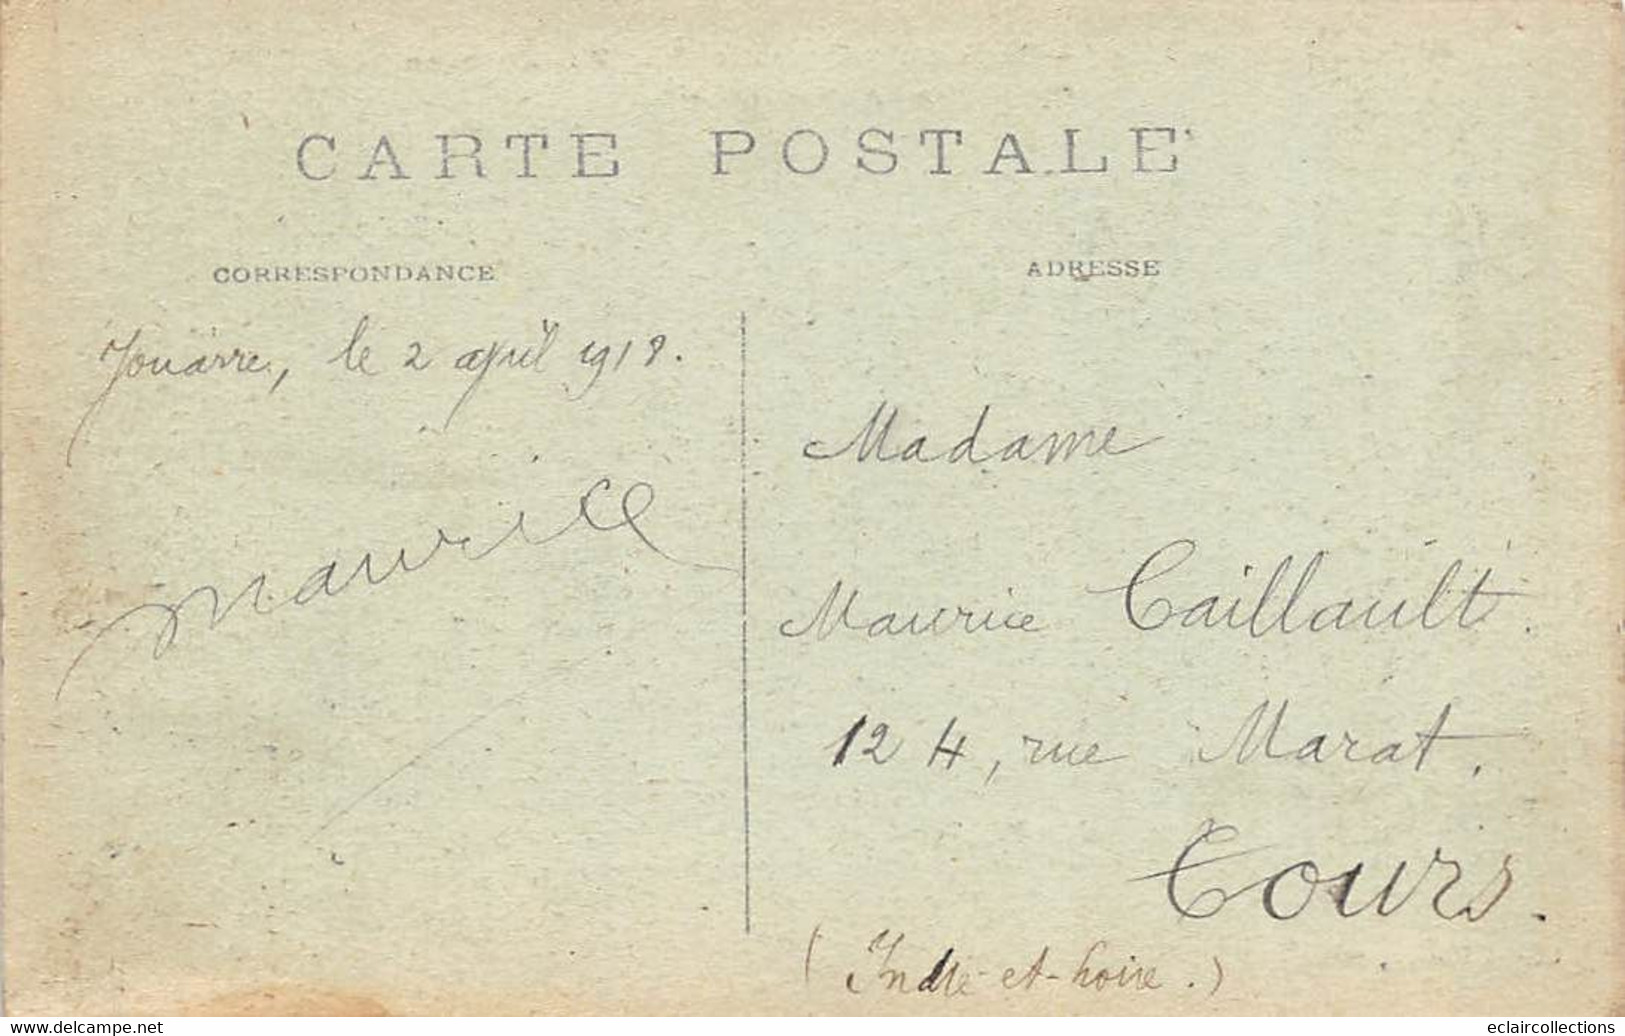 CARTE POSTALE
CORRESPONDANCE
ADRESSE
Jouarre, le 2 april 1918.
Maurice
Madame
Maurice Caillault.
124, rue Marat.
Tours.
(Indre-et-Loire.)
www.delcampe.net
eclaircollections